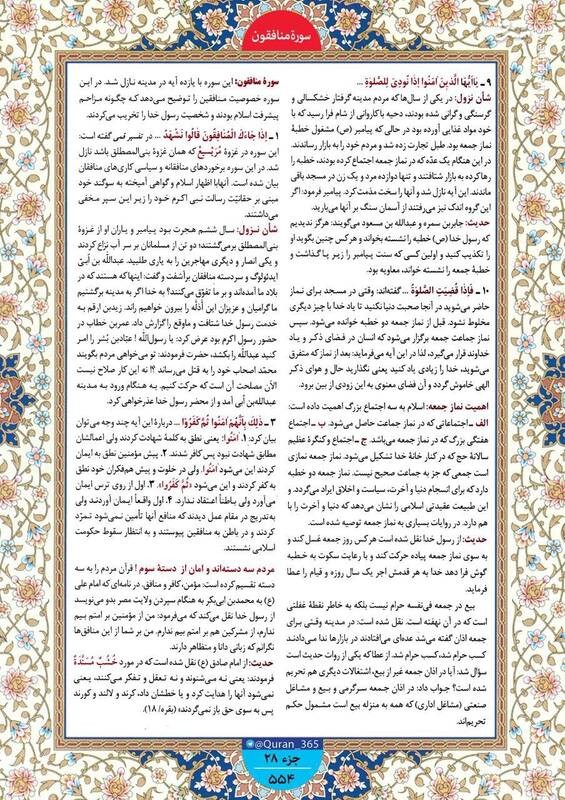 سورهٔ منافقون
۹ ـ یٰااَیُّهَا الَّذینَ آمَنُوا اِذٰا نُودِیَ لِلصَّلوٰةِ ...
شأن نزول: در یکی از سال‌ها که مردم مدینه گرفتار خشکسالی و
گرسنگی و گرانی شده بودند، دحیه با کاروانی از شام فرا رسید که با
خود مواد غذایی آورده بود در حالی که پیامبر (ص) مشغول خطبهٔ
نماز جمعه بود. طبل تجارت زده شد و مردم خود را به بازار رساندند.
در این هنگام یک عدّه که در نماز جمعه اجتماع کرده بودند، خطبه را
رها کرده به بازار شتافتند و تنها دوازده مرد و یک زن در مسجد باقی
ماندند. این آیه نازل شد و آنها را سخت مذمت کرد. پیامبر فرمود: اگر
این گروه اندک نیز می‌رفتند از آسمان سنگ بر آنها می‌بارید.
حدیث: جابربن سمره و عبدالله بن مسعود می‌گویند: هرگز ندیدیم
که رسول خدا (ص) خطبه را نشسته بخواند و هر کس چنین بگوید او
را تکذیب کنید و اولین کسی که سنت پیامبر را زیر پا گذاشت و
خطبهٔ جمعه را نشسته خواند، معاویه بود.
۱۰ ـ فَاِذٰا قُضِیَتِ الصَّلوٰةُ ... گفته‌اند: وقتی در مسجد برای نماز
حاضر می‌شوید در آنجا صحبت دنیا نکنید تا یاد خدا با چیز دیگری
مخلوط نشود. قبل از نماز جمعه دو خطبه خوانده می‌شود. سپس
نماز جماعت جمعه برگزار می‌شود که انسان در فضای ذکر و یاد
خداوند قرار می‌گیرد، لذا در این آیه می‌فرماید: بعد از نماز که متفرق
می‌شوید، خدا را زیادی یاد کنید یعنی نگذارید حال و هوای ذکر
الهی خاموش گردد و آن فضای معنوی به این زودی از بین برود.
اهمیت نماز جمعه: اسلام به سه اجتماع بزرگ اهمیت داده است:
الف ـ اجتماعاتی که در نماز جماعت حاصل می‌شود. ب ـ اجتماع
هفتگی بزرگ که در نماز جمعه می‌باشد. ج ـ اجتماع و کنگرهٔ عظیم
سالانهٔ حج که در کنار خانهٔ خدا تشکیل می‌شود. نماز جمعه نمازی
است جمعی که جز به جماعت صحیح نیست. نماز جمعه دو خطبه
دارد که برای انسجام دنیا و آخرت، سیاست و اخلاق ایراد می‌گردد. و
این طبیعت عقیدتی اسلامی را نشان می‌دهد که دنیا و آخرت را با
هم دارد. در روایات بسیاری به نماز جمعه توصیه شده است.
حدیث: از رسول خدا نقل شده است هر کس روز جمعه غسل کند و
به سوی نماز جمعه پیاده حرکت کند و با رعایت سکوت به خطبه
گوش فرا دهد خدا به هر قدمش اجر یک سال روزه و قیام را عطا
فرماید
بیع در جمعه فی‌نفسه حرام نیست بلکه به خاطر نقطهٔ غفلتی
است که در آن نهفته است. نقل شده است: در مدینه وقتی برای
جمعه اذان گفته می‌شد عده‌ای می‌افتادند در بازارها ندا می‌دادند
کسب حرام شد، کسب حرام شد. از عطا که یکی از روات حدیث است
سؤال شد: آیا در اذان جمعه غیر از بیع، اشتغالات دیگری هم تحریم
شده است؟ جواب داد: در اذان جمعه سرگرمی و بیع و مشاغل
صنعتی (مشاغل اداری) که همه به منزله بیع است مشمول حکم
تحریم‌اند.
سورهٔ منافقون: این سوره با یازده آیه در مدینه نازل شد. در این
سوره خصوصیت منافقین را توضیح می‌دهد که چگونه مزاحم
پیشرفت اسلام بودند و شخصیت رسول خدا را تخریب می‌کردند.
۱ ـ اِذٰا جٰاءَکَ الْمُنٰافِقُونَ قٰالُوا نَشْهَدُ ... در تفسیر قمی گفته است:
این سوره در غزوهٔ مُرَیْسِیع که همان غزوهٔ بنی‌المصطلق باشد نازل
شد. در این سوره برخوردهای منافقانه و سیاسی کاری‌های منافقان
بیان شده است. آنها با اظهار اسلام و گواهی آمیخته به سوگند خود
مبنی بر حقانیّت رسالت نبی اکرم خود را زیر این سپر مخفی
می‌داشتند.
شأن نزول: سال ششم هجرت بود پیامبر و یاران او از غزوهٔ
بنی‌المصطلق برمی‌گشتند؛ دو تن از مسلمانان بر سر آب نزاع کردند
و یکی انصار و دیگری مهاجرین را به یاری طلبید. عبدالله بن اُبیّ
ایدئولوگ و سردسته منافقان برآشفت و گفت: اینها که هستند که در
بلاد ما آمده‌اند و بر ما تفوّق می‌کنند؟ به خدا اگر به مدینه برگشتیم
ما گرامیان و عزیزان این اَذِلّه را بیرون خواهیم راند. زیدبن ارقم به
خدمت رسول خدا شتافت و ماوقع را گزارش داد. عمربن خطاب در
حضور رسول اکرم بود عرض کرد: یا رسول‌الله! عبّادبن بُشر را امر
کنید عبدالله را بکشد، حضرت فرمودند: تو می‌خواهی مردم بگویند
محمّد اصحاب خود را به قتل می‌رساند ؟! نه این کار صلاح نیست
الآن مصلحت آن است که حرکت کنیم. به هنگام ورود به مدینه
عبدالله‌بن اُبی آمد و از محضر رسول خدا عذرخواهی کرد.
۳ ـ ذٰلِکَ بِاَنَّهُمْ آمَنُوا ثُمَّ کَفَرُوا ... دربارهٔ این آیه چند وجه می‌توان
بیان کرد: ۱. آمَنُوا: یعنی نطق به کلمهٔ شهادت کردند ولی اعمالشان
مطابق شهادت نبود پس کافر شدند. ۲. پیش مؤمنین نطق به ایمان
کردند این می‌شود آمَنُوا. ولی در خلوت و پیش هم‌فکران خود نطق
به کفر کردند و این می‌شود «ثُمَّ کَفَرُوا». ۳. اول از روی ترس ایمان
می‌آورد ولی باطناً اعتقاد ندارد. ۴. اول واقعاً ایمان آوردند ولی
به‌تدریج در مقام عمل دیدند که منافع آنها تأمین نمی‌شود تمرّد
کردند و در باطن به منافقین پیوستند و به انتظار سقوط حکومت
اسلامی نشستند.
مردم سه دسته‌اند و امان از دستهٔ سوم ! قرآن مردم را به سه
دسته تقسیم کرده است: مؤمن، کافر و منافق. در نامه‌ای که امام علی
(ع) به محمدبن ابی‌بکر به هنگام سپردن ولایت مصر بدو می‌نویسد
از رسول خدا نقل می‌کند که می‌فرمود: من از مؤمنین بر امتم بیم
ندارم، از مشرکین هم بر امتم بیم ندارم. من بر شما از این منافق‌ها
نگرانم که زبانی دانا و متظاهر دارند.
حدیث: از امام صادق (ع) نقل شده است که در مورد خُشُبٌ مُسَنَّدَةٌ
فرمودند: یعنی نه می‌شنوند و نه تعقل و تفکر می‌کنند، یعنی
نمی‌شود آنها را هدایت کرد و یا خطشان داد، کرند و لالند و کورند
پس به سوی حق باز نمی‌گردند» (بقره/ ۱۸).
@Quran_365
جزء ۲۸
۵۵۴